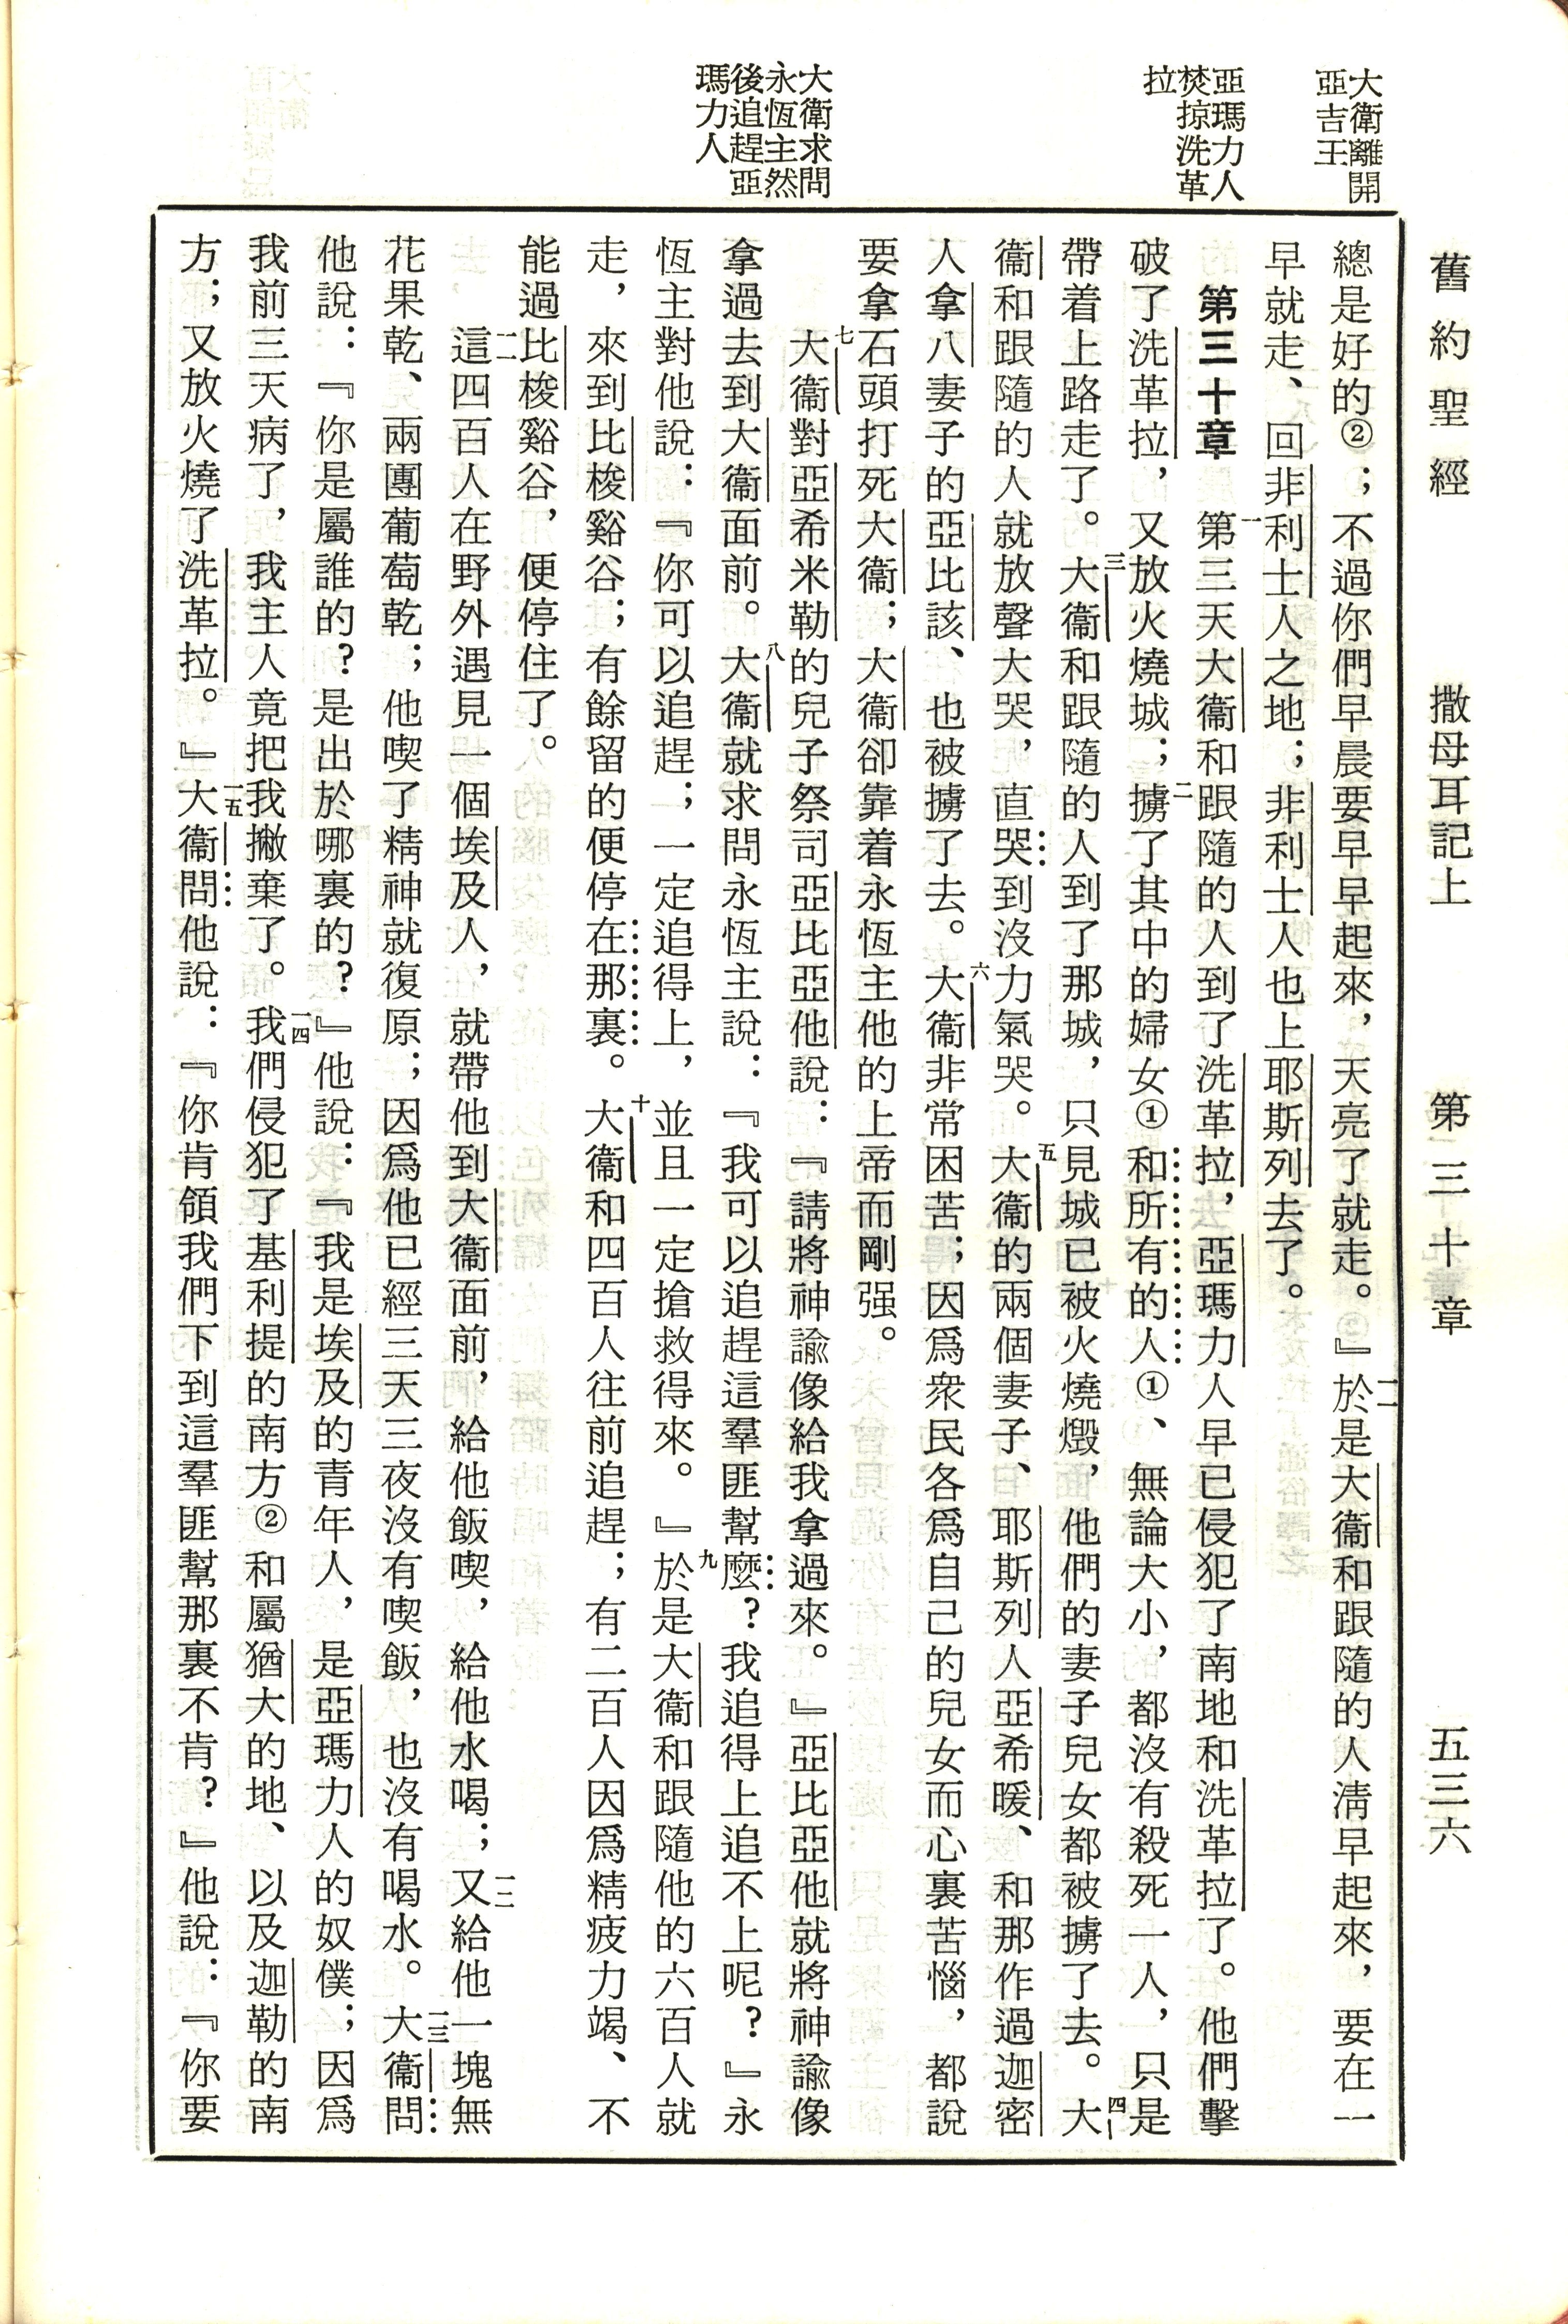 舊約聖經　撒母耳記上　第三十章　五三六
大衞離開
亞吉王
亞瑪力人
焚掠洗革
拉
大衞求問
永恆主然
後追趕亞
瑪力人
總是好的②；不過你們早晨要早早起來，天亮了就走。』一一於是大衞和跟隨的人淸早起來，要在一
早就走、回非利士人之地；非利士人也上耶斯列去了。
第三十章　一第三天大衞和跟隨的人到了洗革拉，亞瑪力人早已侵犯了南地和洗革拉了。他們擊
破了洗革拉，又放火燒城；二擄了其中的婦女①和所有的人①、無論大小，都沒有殺死一人，只是
帶着上路走了。三大衞和跟隨的人到了那城，只見城已被火燒燬，他們的妻子兒女都被擄了去。四大
衞和跟隨的人就放聲大哭，直哭到沒力氣哭。五大衞的兩個妻子、耶斯列人亞希暖、和那作過迦密
人拿八妻子的亞比該、也被擄了去。六大衞非常困苦；因爲衆民各爲自己的兒女而心裏苦惱，都說
要拿石頭打死大衞；大衞卻靠着永恆主他的上帝而剛强。
七大衞對亞希米勒的兒子祭司亞比亞他說：『請將神諭像給我拿過來。』亞比亞他就將神諭像
拿過去到大衞面前。八大衞就求問永恆主說：『我可以追趕這羣匪幫麼？我追得上追不上呢？』永
恆主對他說：『你可以追趕；一定追得上，並且一定搶救得來。』九於是大衞和跟隨他的六百人就
走，來到比梭谿谷；有餘留的便停在那裏。十大衞和四百人往前追趕；有二百人因爲精疲力竭、不
能過比梭谿谷，便停住了。
一一這四百人在野外遇見一個埃及人，就帶他到大衞面前，給他飯喫，給他水喝；一二又給他一塊無
花果乾、兩團葡萄乾；他喫了精神就復原；因爲他已經三天三夜沒有喫飯，也沒有喝水。一三大衞問
他說：『你是屬誰的？是出於哪裏的？』他說：『我是埃及的青年人，是亞瑪力人的奴僕；因爲
我前三天病了，我主人竟把我撇棄了。一四我們侵犯了基利提的南方②和屬猶大的地、以及迦勒的南
方；又放火燒了洗革拉。』一五大衞問他說：『你肯領我們下到這羣匪幫那裏不肯？』他說：『你要